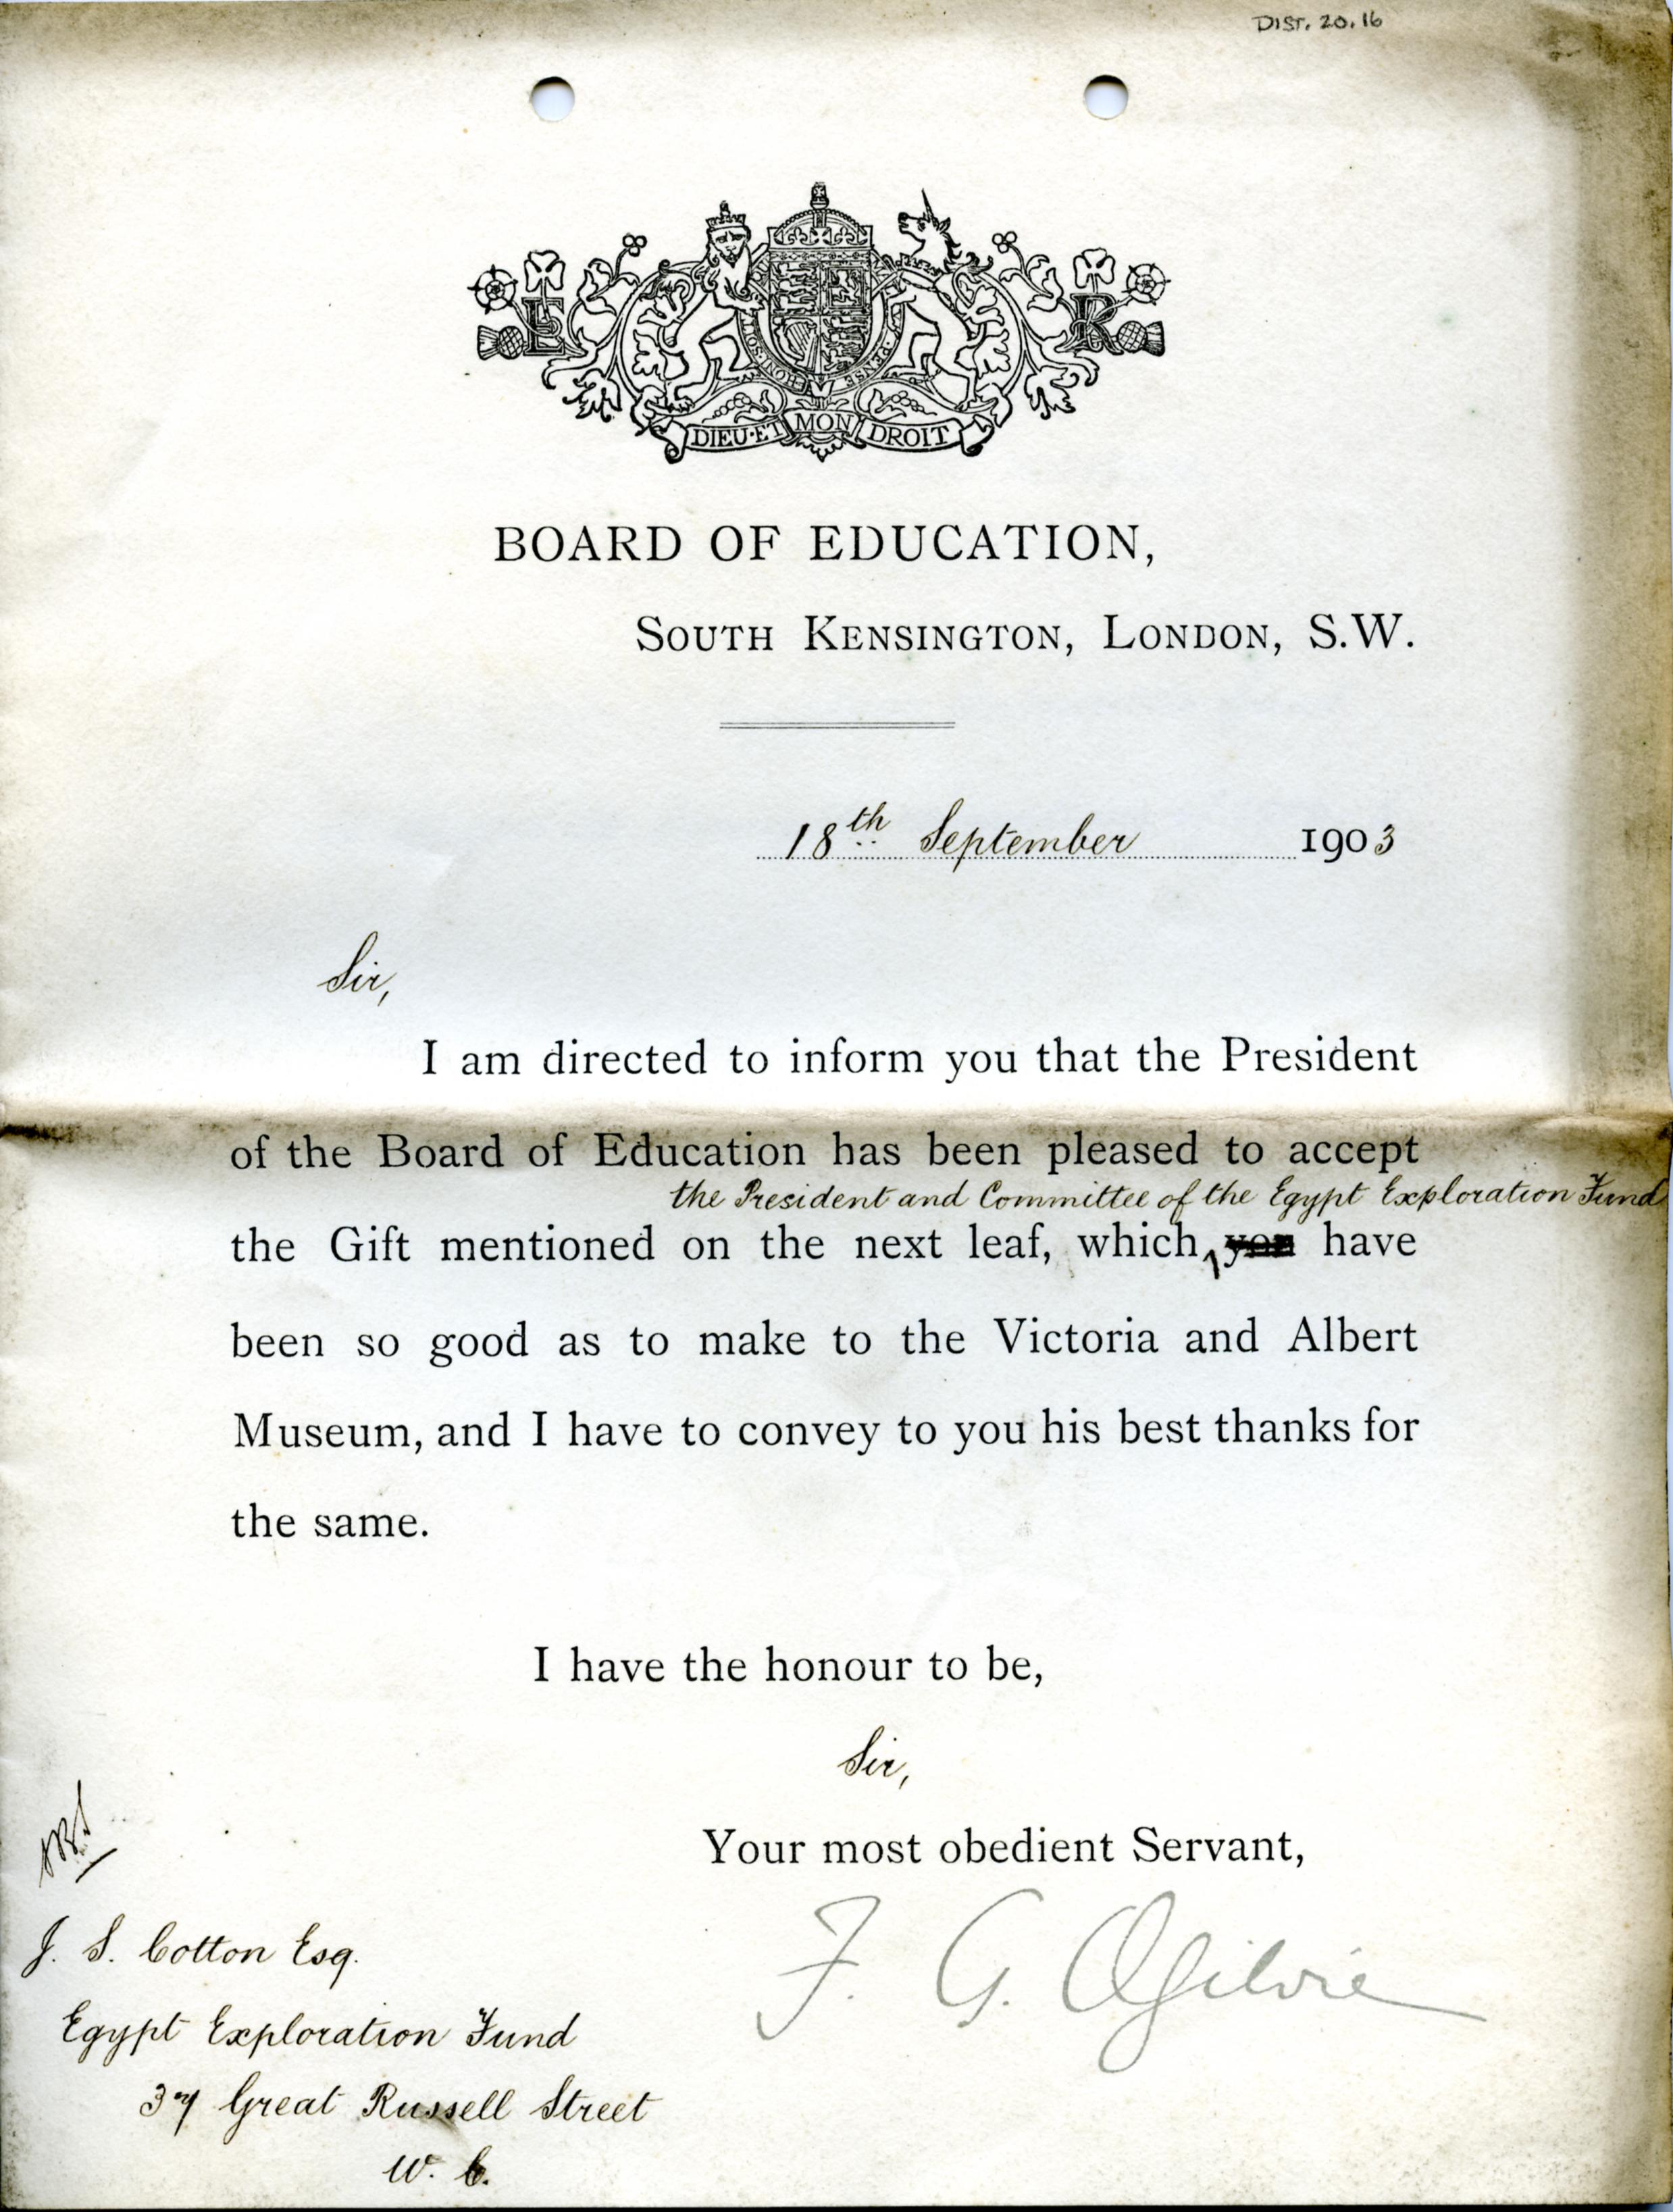 DIST. 20.16
E R
HONI SOIT
PENSE
DIEU·ET MON DROIT
BOARD OF EDUCATION,
SOUTH KENSINGTON, LONDON, S.W.
18th September 1903
Sir,
I am directed to inform you that the President
of the Board of Education has been pleased to accept
the President and Committee of the Egypt Exploration Fund
the Gift mentioned on the next leaf, which you have
been so good as to make to the Victoria and Albert
Museum, and I have to convey to you his best thanks for
the same.
I have the honour to be,
Sir,
Your most obedient Servant,
F. G. Ogilvie
J. S. Cotton Esq.
Egypt Exploration Fund
37 Great Russell Street
W. C.